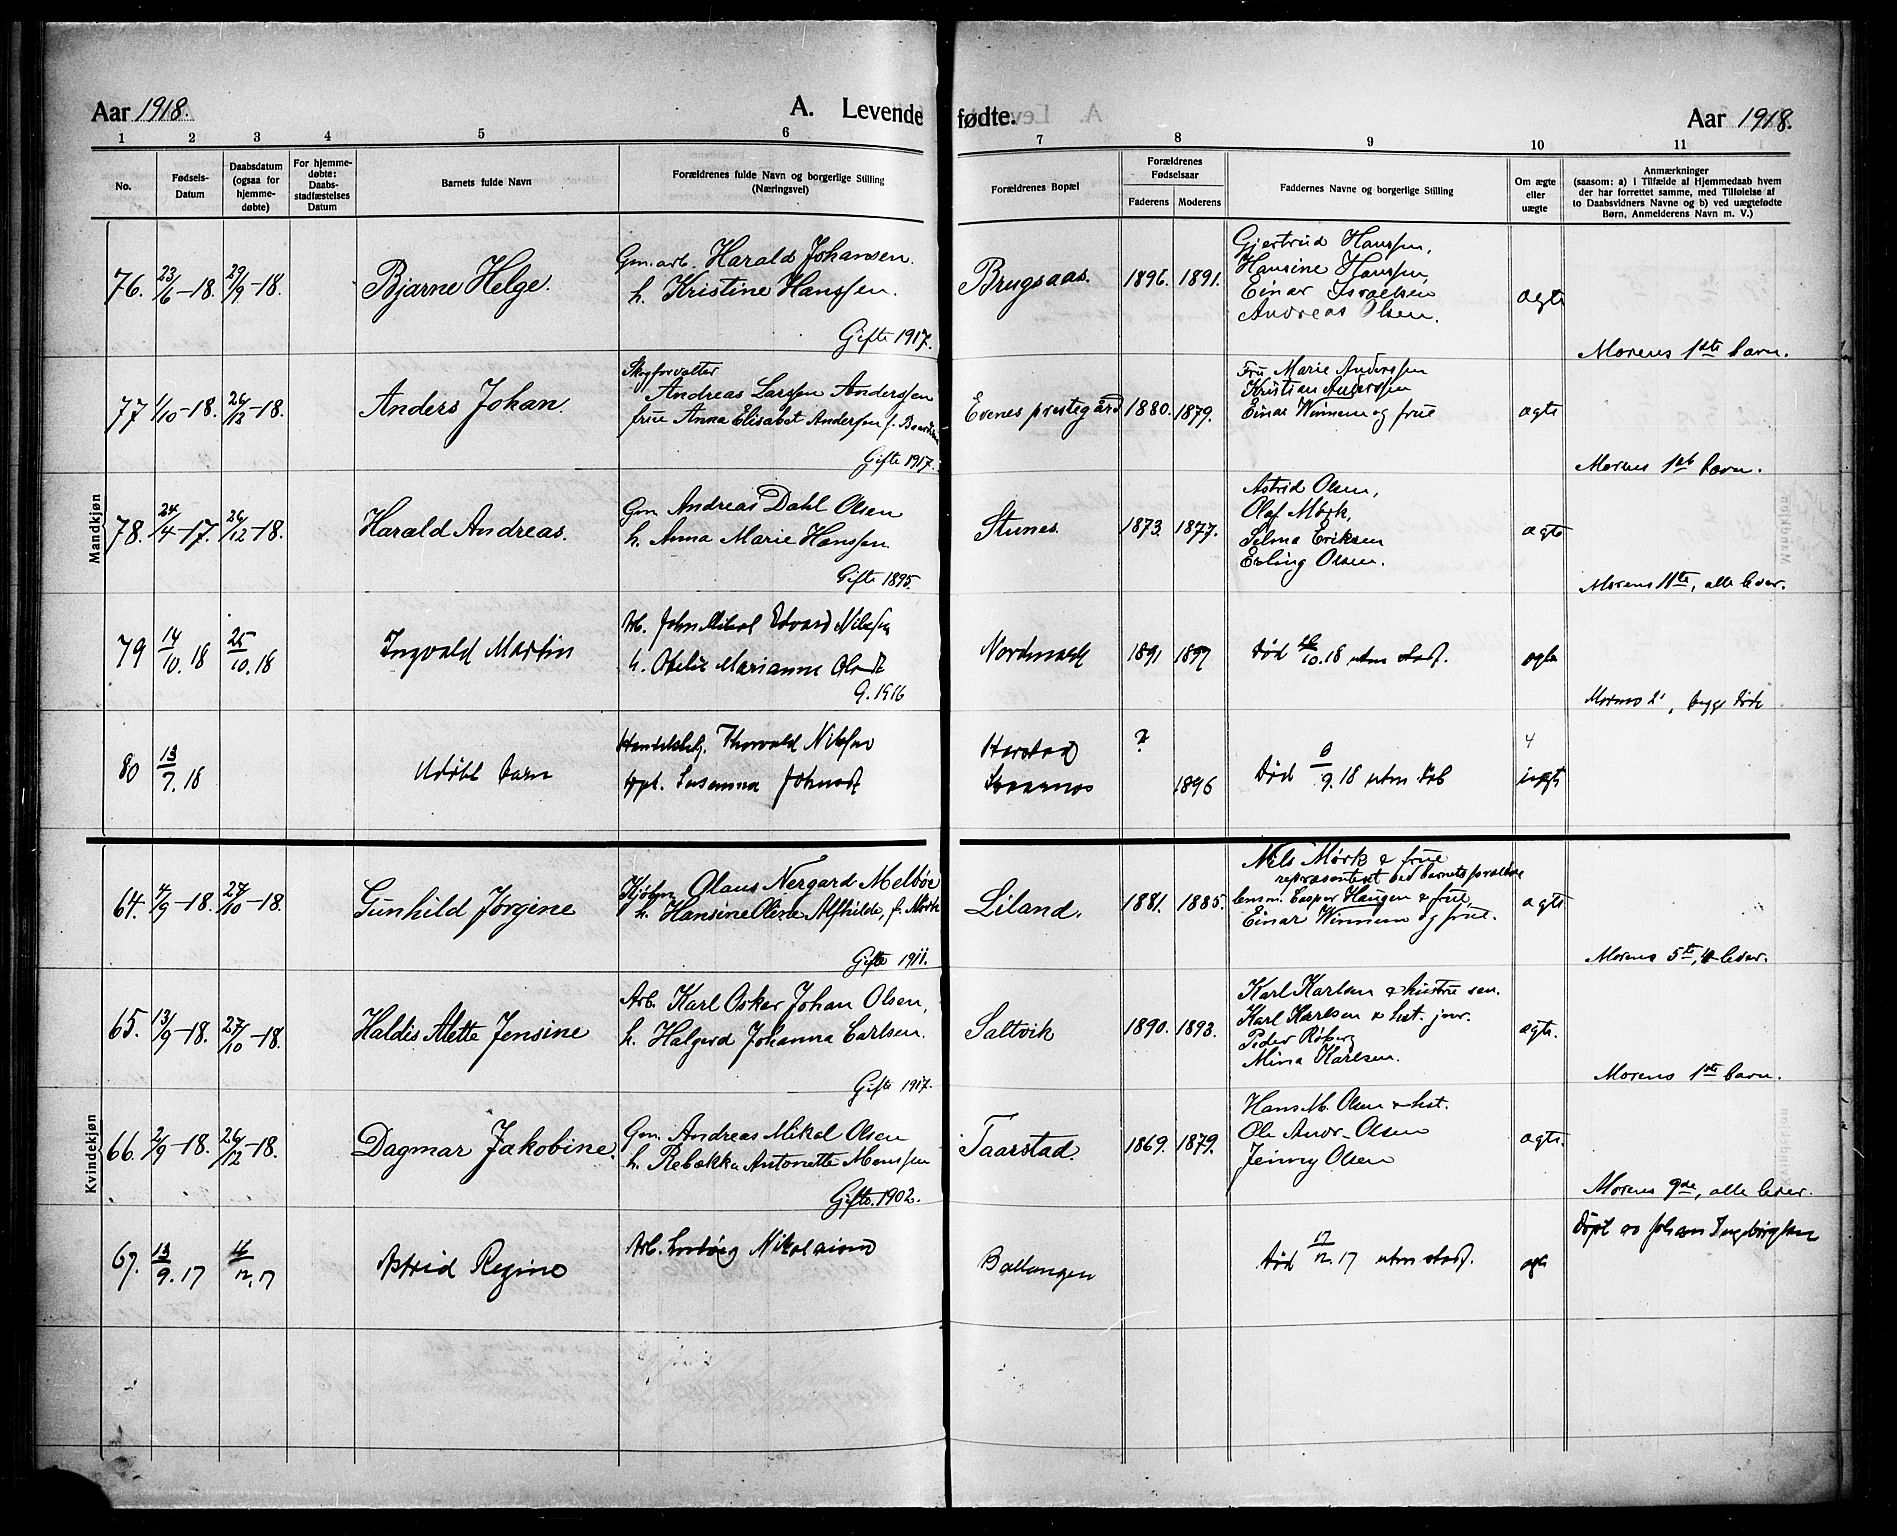 Aar 1918. A. Levende fødte. Aar 1918.
1 2 3 4 5 6 7 8 9 10 11
No.
Fødsels-
Datum
Daabsdatum
(ogsaa for
hjemme-
døbte)
For hjemme-
døbte:
Daabs-
stadfæstelses
Datum
Barnets fulde Navn
Forældrenes fulde Navn og borgerlige Stilling
(Næringsvei)
Forældrenes Bopæl
Forældrenes
Fødselsaar
Faderens Moderens
Faddernes Navne og borgerlige Stilling
Om ægte
eller
uægte
Anmærkninger
(saasom: a) i Tilfælde af Hjemmedaab hvem
der har forrettet samme, med Tilføielse af
to Daabsvidners Navne og b) ved uægtefødte
Børn, Anmelderens Navn m. V.)
Mandkjøn
76. 23/6-18. 29/9-18.
Bjarne Helge.
Gm.arb. Harald Johansen.
h. Kristine Hanssen.
Gifte 1917.
Brugsaas. 1896. 1891.
Gjertrud Hanssen,
Hansine Hanssen
Einar Israelsen
Andreas Olsen.
ægte
Morens 1ste barn.
77 1/10-18. 26/12-18.
Anders Johan.
Skogforvalter
Andreas Larssen Anderssen
frue Anna Elisabet Andersen f.
Gifte 1917.
Evenes prestegård 1880. 1879.
Fru Marie Anderssen
Kristian Anderssen
Einar Winnem og frue
ægte
Morens 1ste barn.
78. 24/4-17. 26/12-18.
Harald Andreas.
Gm Andreas Dahl Olsen
h. Anna Marie Hanssen.
Gifte 1895.
Stunes. 1873. 1877.
Astrid Olsen,
Olaf Mørk,
Selma Eriksen
Erling Olsen.
ægte
Morens 11te, alle lever.
79 14/10.18 25/10.18
Ingvald Martin
Arb. John Mikal Edvard Nilsen
h. Marianne
G. 1916
Nordmark 1891 1897
Død 26/10.18 uten attest.
ægte
Morens 2', begge døde
80 13/7.18
Udøbt barn
Thorvald Nilsen
Susanna
Harstad ?
1896
Død 6/9.18 uten
4
uægte
Kvindekjøn
64. 4/9-18. 27/10-18.
Gunhild Jørgine
Kjøbm. Olaus Nergard Melbøe
h. Hansine Olene Alfhilde, f. Mørk
Gifte 1911.
Liland. 1881. 1885.
Nils Mørk & frue
repræsentert ved barnets forældre
lensm. Casper Haugen & frue,
Einar Winnem og frue.
ægte
Morens 5te, 4 lever.
65. 13/9-18. 27/10-18.
Haldis Alette Jensine
Arb. Karl Oskar Johan Olsen,
h. Halgerd Johanna Carlsen.
Gifte 1917.
Saltvik 1890. 1893.
Karl Karlsen & hustru sen.
Karl Karlsen & hust. jnr.
Peder Røberg
Mina Karlsen.
ægte.
Morens 1ste barn.
66. 2/9-18. 26/12-18.
Dagmar Jakobine.
Gm. Andreas Mikal Olsen
h. Rebekka Antonette Monssen
Gifte 1902.
Taarstad. 1869. 1879.
Hans M. Olsen & hust.
Ole Andr. Olsen
Jenny Olsen
ægte.
Morens 9de, alle lever.
67. 13/9.17 16/12.17
Astrid Regine
Arb. Nikolaisen
Ballangen
Død 17/12.17 uten attest.
ægte
Døpt av Johan Ingebrigtsen